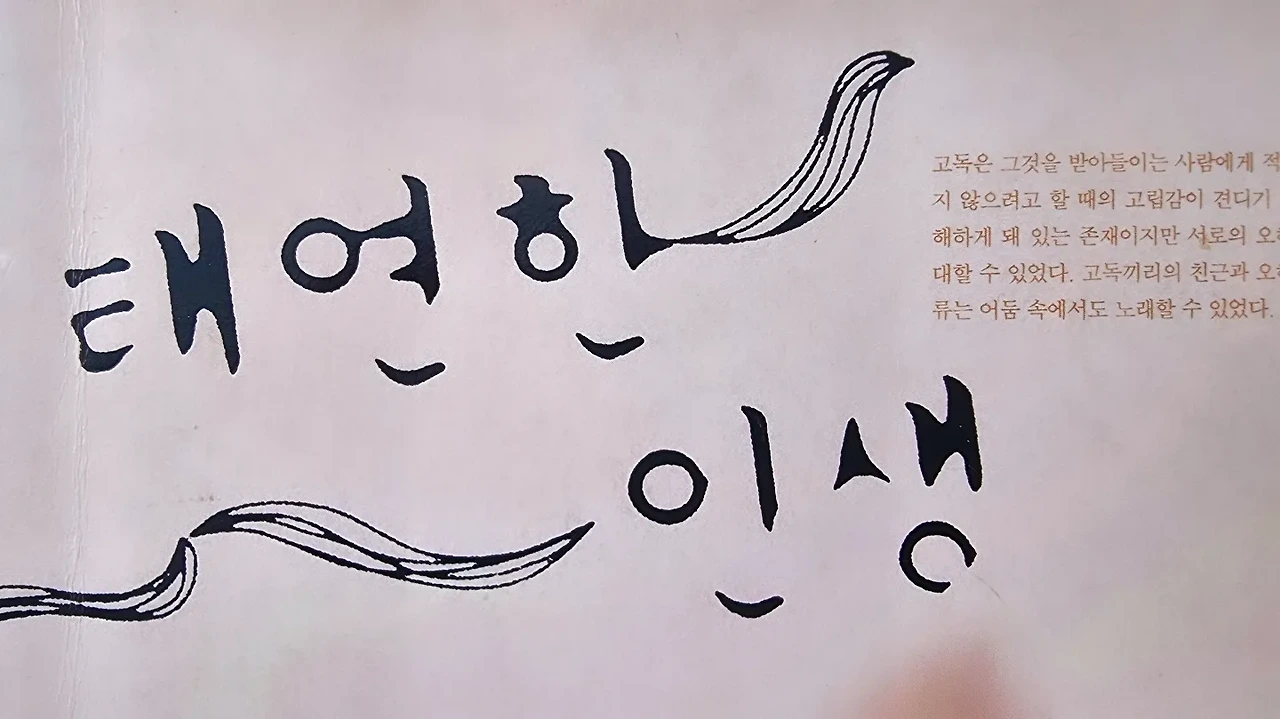 태연한
인생
고독은 그것을 받아들이는 사람에게
지 않으려고 할 때의 고립감이 견디기
해하게 돼 있는 존재이지만 서로의
대할 수 있었다. 고독끼리의 친근과
류는 어둠 속에서도 노래할 수 있었다.